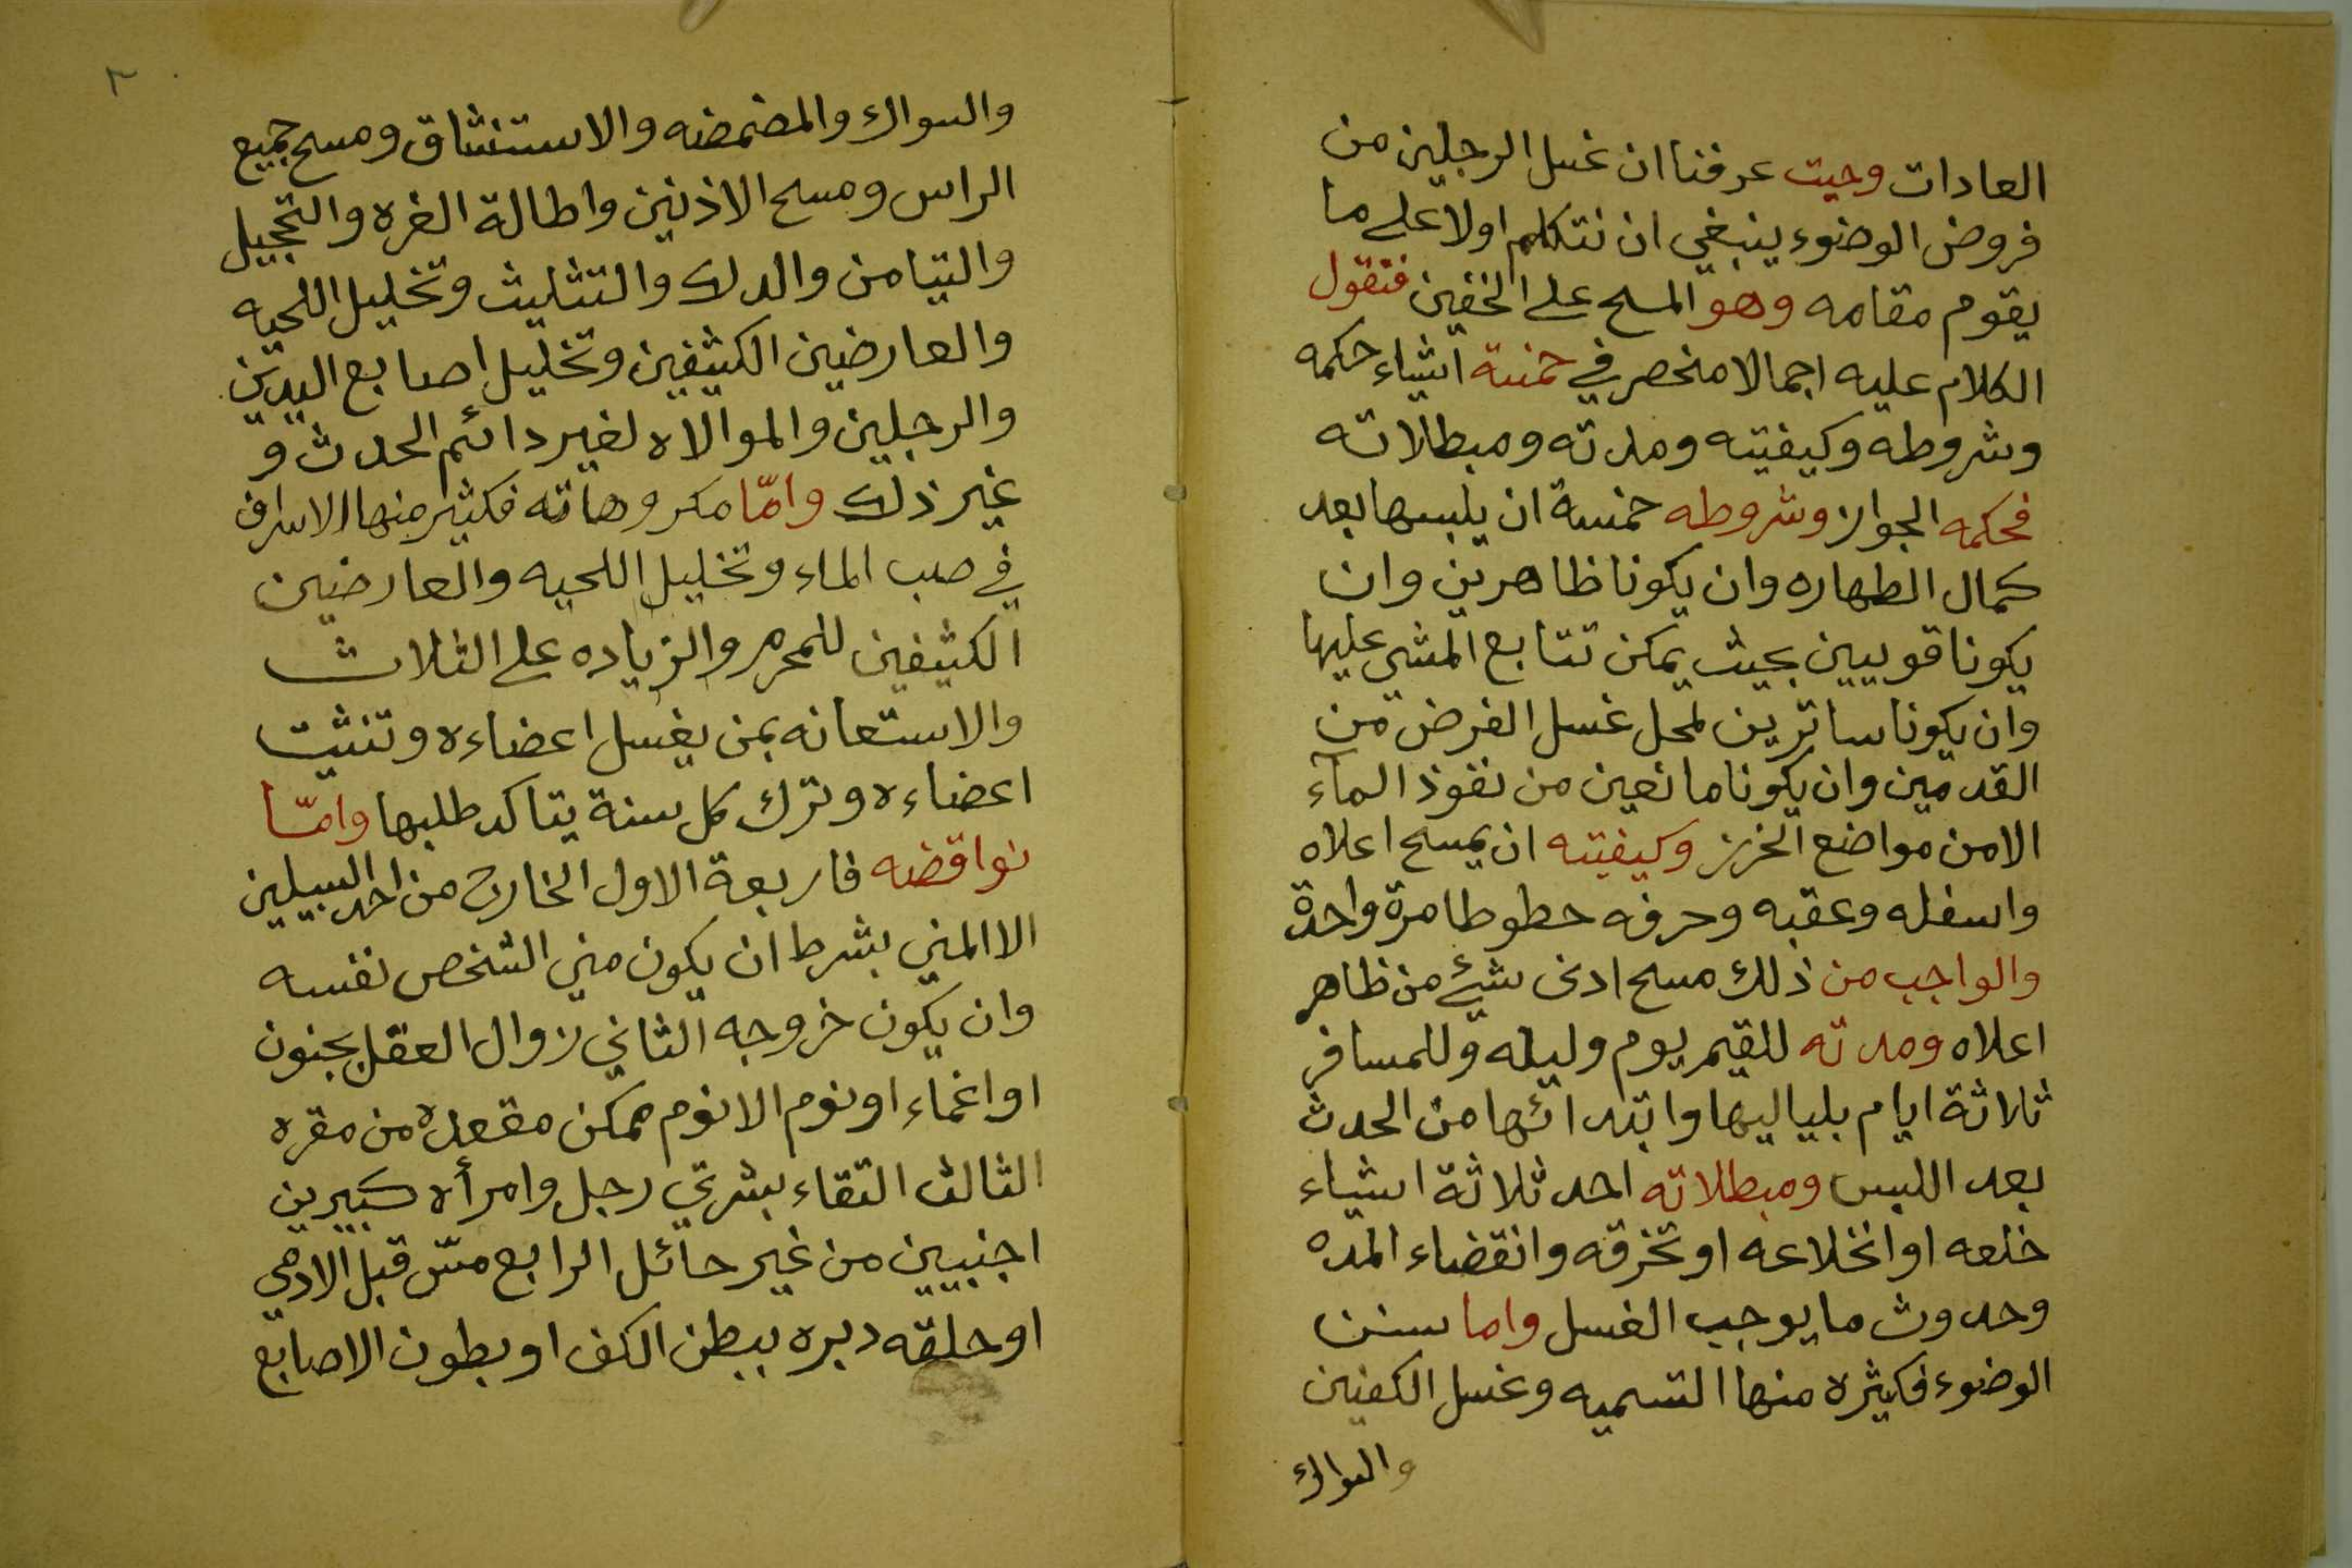 العادات وحيت عرفنا ان غسل الرجلين من
فروض الوضوء ينبغي ان نتكلم اولا على ما
يقوم مقامه وهو المسح على الخفين فنقول
الكلام عليه اجمالا منحصر في خمسة اشياء حكمه
وشروطه وكيفيته ومدته ومبطلاته
فحكمه الجواز وشروطه خمسة ان يلبسها بعد
كمال الطهاره وان يكونا ظاهرين وان
يكونا قويين بحيث يمكن تتابع المشي عليها
وان يكونا ساترين لمحل غسل الفرض من
القدمين وان يكونا مانعين من نفوذ المآء
الا من مواضع الخرز وكيفيته ان يمسح اعلاه
واسفله وعقبه وحرفه خطوطا مرة واحدة
والواجب من ذلك مسح ادنى شيئ من ظاهر
اعلاه ومدته للقيم يوم وليله وللمسافر
ثلاثة ايام بلياليها وابتدائها من الحدث
بعد اللبس ومبطلاته احد ثلاثة اشياء
خلعه او انخلاعه او تخرقه وانقضاء المده
وحدوث ما يوجب الغسل واما سنن
الوضوء فكثيره منها التسميه وغسل الكفين
والسواك
٢
والسواك والمضمضه والاستنشاق ومسح جميع
الراس ومسح الاذنين واطالة الغره والتجيل
والتيامن والدلك والتثليث وتخليل اللحيه
والعارضين الكثيفين وتخليل اصابع اليدين
والرجلين والموالاه لغير دائم الحدث و
غير ذلك وامّا مكروهاته فكثير منها الاسراف
في صب الماء وتخليل اللحيه والعارضين
الكثيفين للمحرم والزياده على الثلاث
والاستعانه بمن يغسل اعضاءه وتنثيت
اعضاءه وترك كل سنة يتاكد طلبها وامّا
نواقضه فاربعة الاول الخارج من احد السبيلين
الا المني بشرط ان يكون مني الشخص نفسه
وان يكون خروجه الثاني زوال العقل بجنون
او اغماء او نوم الا نوم ممكن مقعده من مقره
الثالث التقاء بشرتي رجل وامرأه كبيرين
اجنبيين من غير حائل الرابع مسّ قبل الادمي
او حلقه دبره ببطن الكف او بطون الاصابع